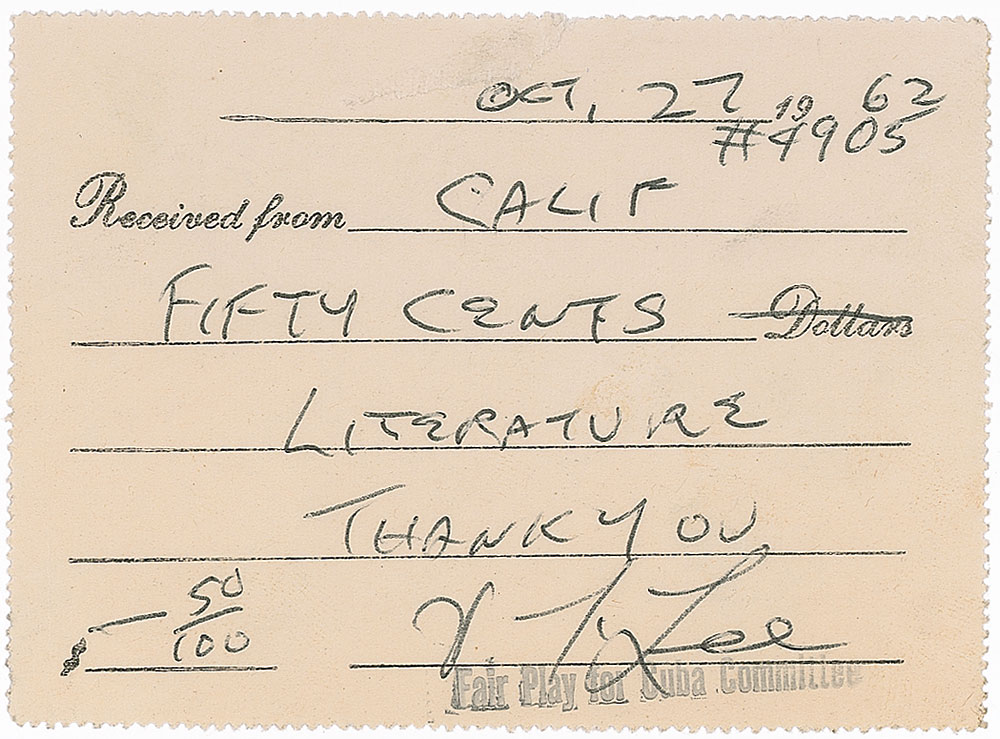 OCT, 27 19 62
#4905
Received from CALIF
FIFTY CENTS Dollars
LITERATURE
THANK YOU
$ — 50/100
V T Lee
Fair Play for Cuba Committee